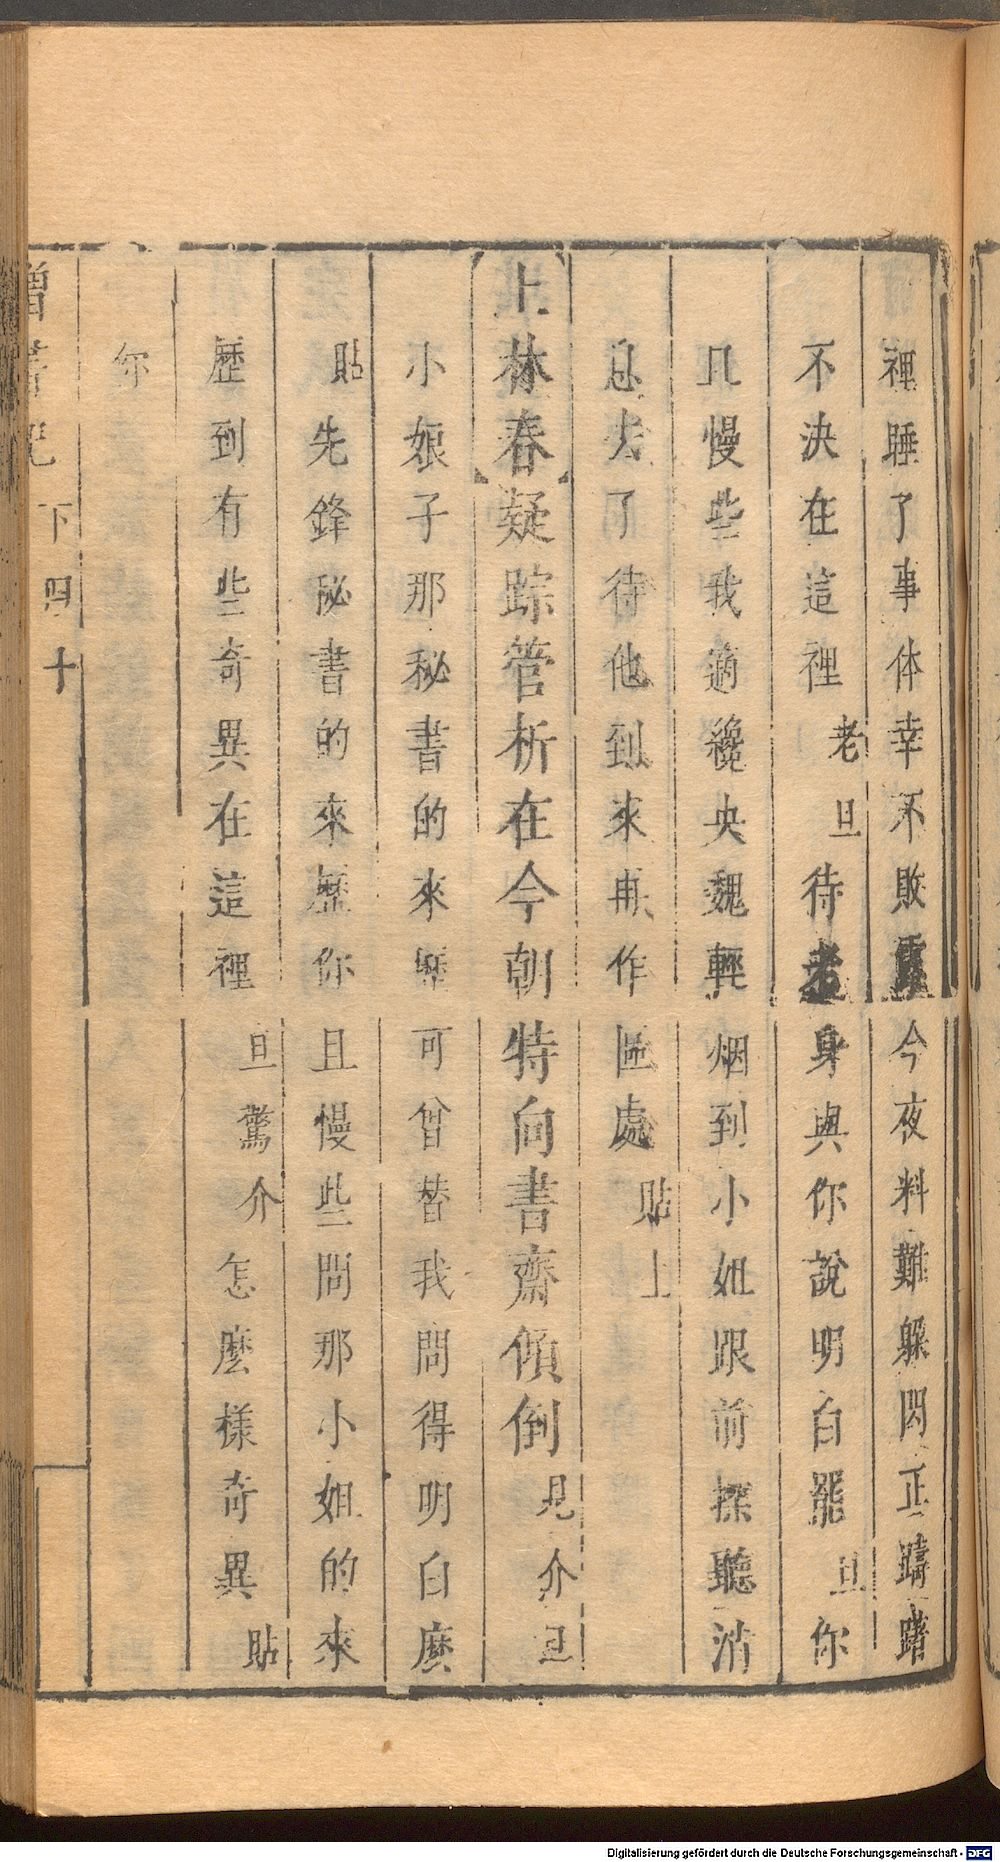 裡睡了事体幸不敗露今夜料難躲閃正躊躇
不決在這裡老旦待老身與你說明白罷旦你
且慢些我適纔央魏輕烟到小姐跟前探聽消
息去了待他到來再作區處貼上
上林春疑踪管析在今朝特向書齋傾倒見介旦
小娘子那秘書的來歷可曾替我問得明白麼
貼先鋒秘書的來歷你且慢些問那小姐的來
歷到有些奇異在這裡旦驚介怎麼樣奇異貼
你
書記
下四十
Digitalisierung gefördert durch die Deutsche Forschungsgemeinschaft - DFG